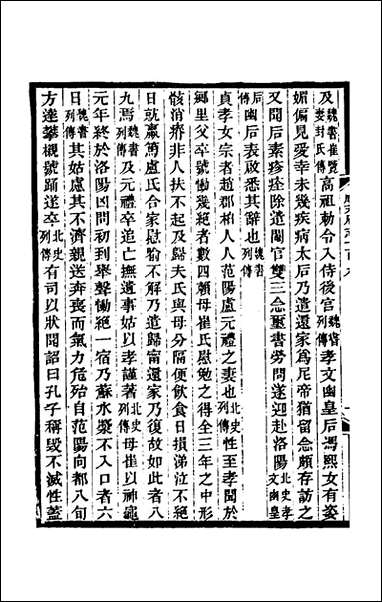 及魏書崔覽妻封氏傳高祖勅令入侍後宮魏書列傳孝文幽皇后馮熙女有姿
媚偏見愛幸未幾疾病太后乃遣還家爲尼帝猶留念頗存訪之
又聞后素疹痊除遣閹官雙三念璽書勞問遂迎赴洛陽北史孝文幽皇
后傳幽后表啟悉其辭也魏書列傳
貞孝女宗者趙郡柏人人范陽盧元禮之妻也北史列傳性至孝聞於
鄉里父卒號慟幾絕者數四賴母崔氏慰勉之得全三年之中形
骸消瘠非人扶不起及歸夫氏與母分隔便飲食日損涕泣不絕
日就羸篤盧氏合家慰喻不解乃遣歸寧還家乃復故如此者八
九焉魏書列傳及元禮卒追亡撫遺事姑以孝謹著北史列傳母崔以神龜
元年終於洛陽凶問初到舉聲慟絕一宿乃蘇水漿不入口者六
日魏書列傳其姑慮其不濟親送奔喪而氣力危殆自范陽向都八旬
方達攀櫬號踊遂卒北史列傳有司以狀聞詔曰孔子稱毀不滅性蓋